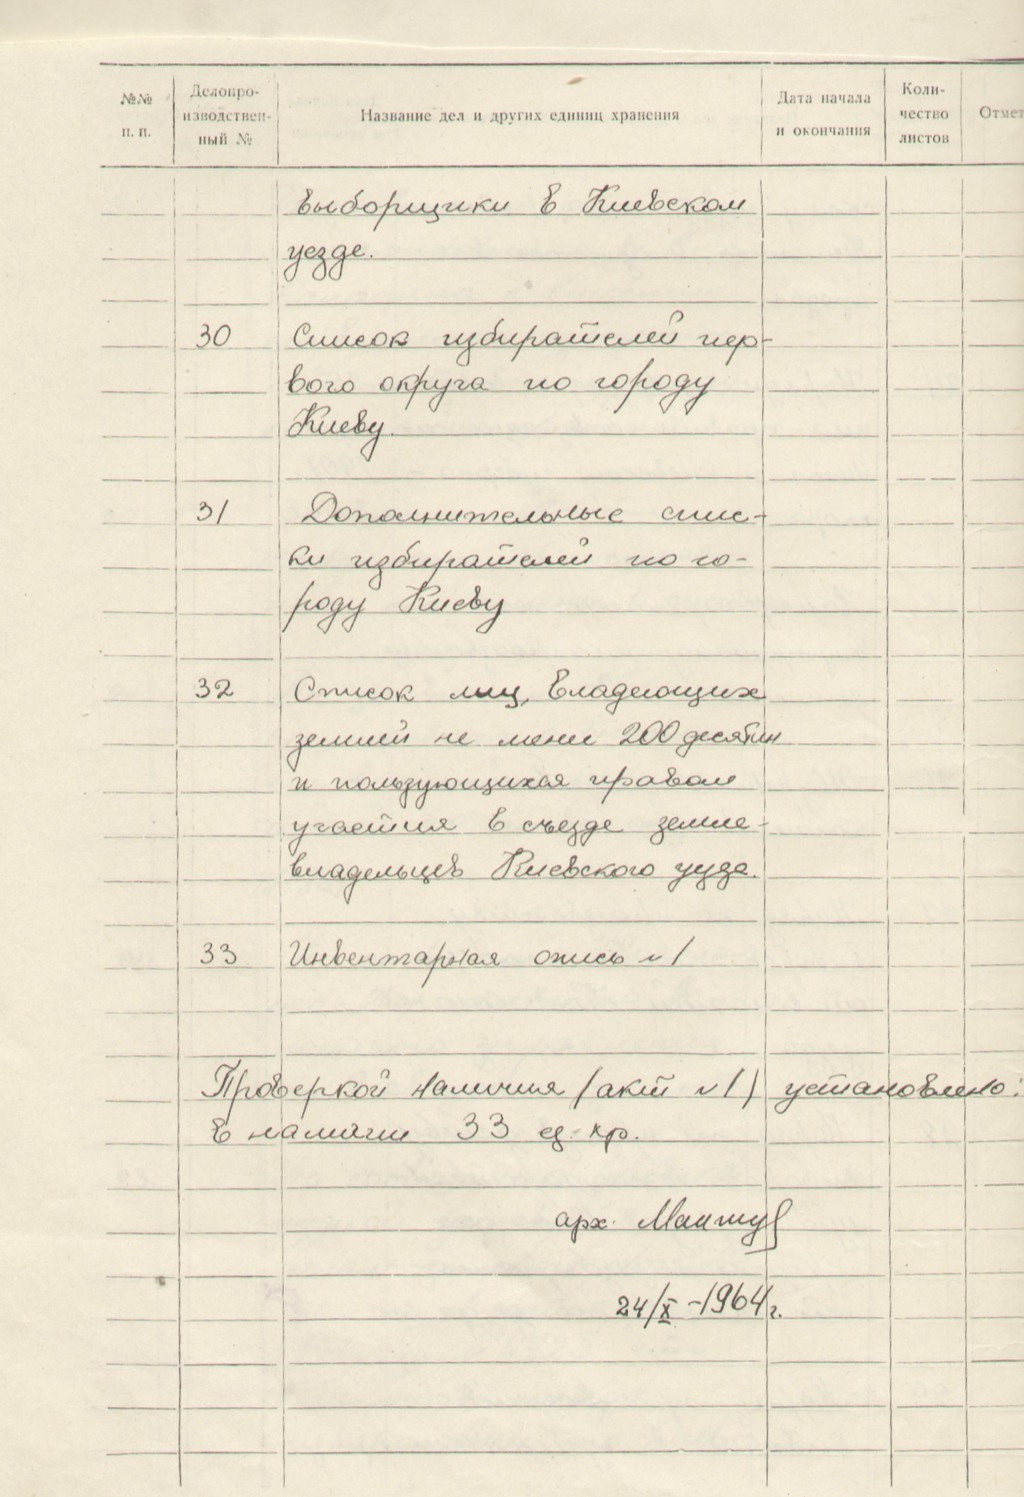 №№ п. п.
Делопро-
изводствен-
ный №
Название дел и других единиц хранения
Дата начала
и окончания
Коли-
чество
листов
Отмет
выборщики в Киевском
уезде.
30 Список избирателей пер-
вого округа по городу
Киеву.
31 Дополнительные спис-
ки избирателей по го-
роду Киеву
32 Список лиц, владеющих
землей не мене 200 десятин
и пользующихся правом
участия в съезде земле-
владельцев Киевского уезда.
33 Инвентарная опись №1
Проверкой наличия /акт №1/ установлено:
в наличии 33 ед. хр.
арх.
24/X -1964 г.